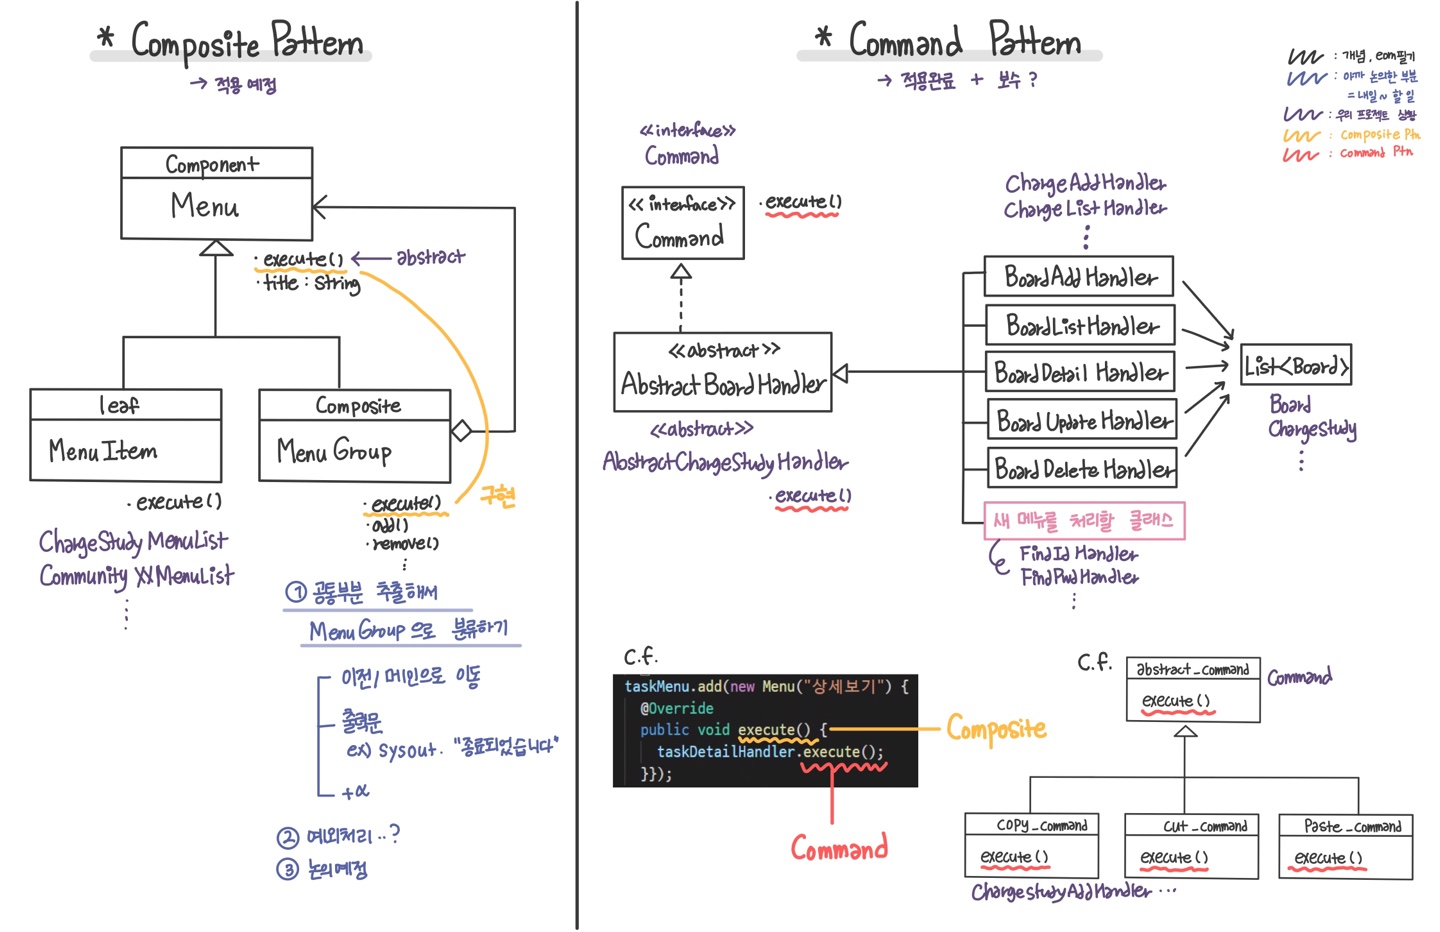 * Composite Pattern
→ 적용 예정
Component
Menu
· execute() ← abstract
· title : String
leaf
MenuItem
· execute()
ChargeStudy MenuList
Community XX MenuList
Composite
Menu Group
· execute()
· add()
· remove()
구현
① 공통부분 추출해서
Menu Group으로 분류하기
이전/메인으로 이동
출력문
ex) sysout. "종료되었습니다"
+α
② 예외처리..?
③ 논의예정
* Command Pattern
→ 적용완료 + 보수?
: 개념, eom필기
: 아까 논의한 부분
= 내일~ 할 일
: 우리 프로젝트 상황
: Composite Ptn
: Command Ptn
<<interface>>
Command
<<interface>>
Command
· execute()
<<abstract>>
Abstract Board Handler
<<abstract>>
AbstractChargeStudy Handler
· execute()
ChargeAddHandler
ChargeListHandler
BoardAddHandler
BoardListHandler
BoardDetail Handler
Board Update Handler
Board Delete Handler
새 메뉴를 처리할 클래스
FindId Handler
FindPwdHandler
List<Board>
Board
ChargeStudy
C.f.
taskMenu.add(new Menu("상세보기") {
@Override
public void execute() {
taskDetailHandler.execute();
}});
Composite
Command
C.f.
abstract_command
execute()
Command
copy_command
execute()
cut_command
execute()
Paste_command
execute()
ChargestudyAddHandler ...